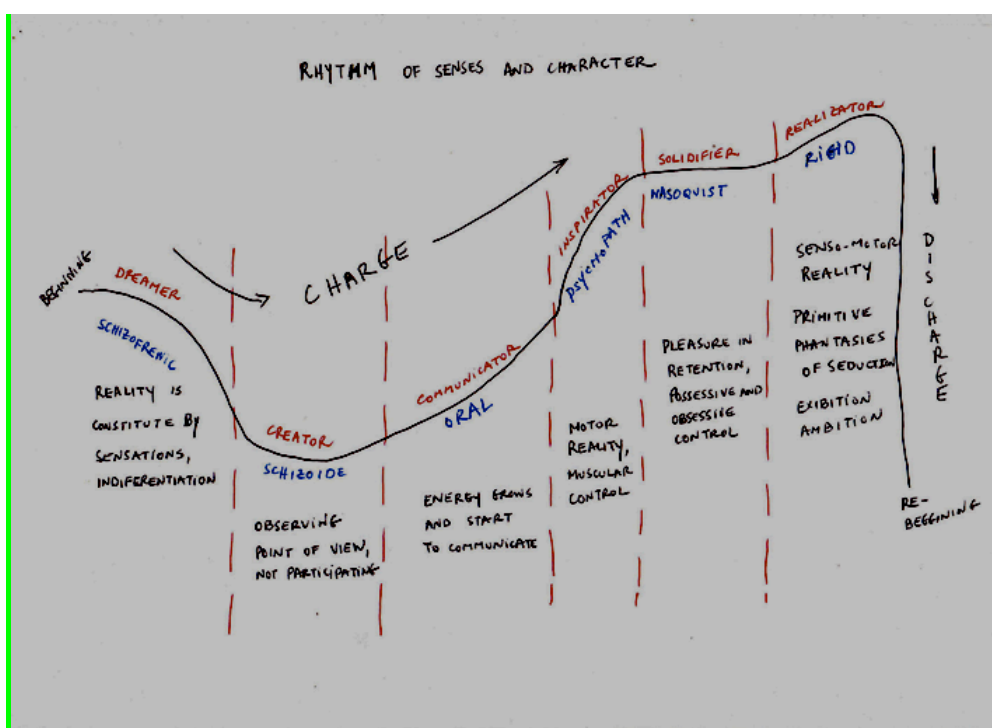 RHYTHM OF SENSES AND CHARACTER
BEGINNING
DREAMER
SCHIZOFRENIC
REALITY IS
CONSTITUTE BY
SENSATIONS,
INDIFERENTIATION
CHARGE
CREATOR
SCHIZOIDE
OBSERVING
POINT OF VIEW,
NOT PARTICIPATING
COMMUNICATOR
ORAL
ENERGY GROWS
AND START
TO COMMUNICATE
INSPIRATOR
PSYCHOPATH
MOTOR
REALITY,
MUSCULAR
CONTROL
SOLIDIFIER
MASOQUIST
PLEASURE IN
RETENTION,
POSSESSIVE AND
OBSESSIVE
CONTROL
REALIZATOR
RIGID
SENSO-MOTOR
REALITY
PRIMITIVE
PHANTASIES
OF SEDUCTION
EXIBITION
AMBITION
DISCHARGE
RE-
BEGGINING